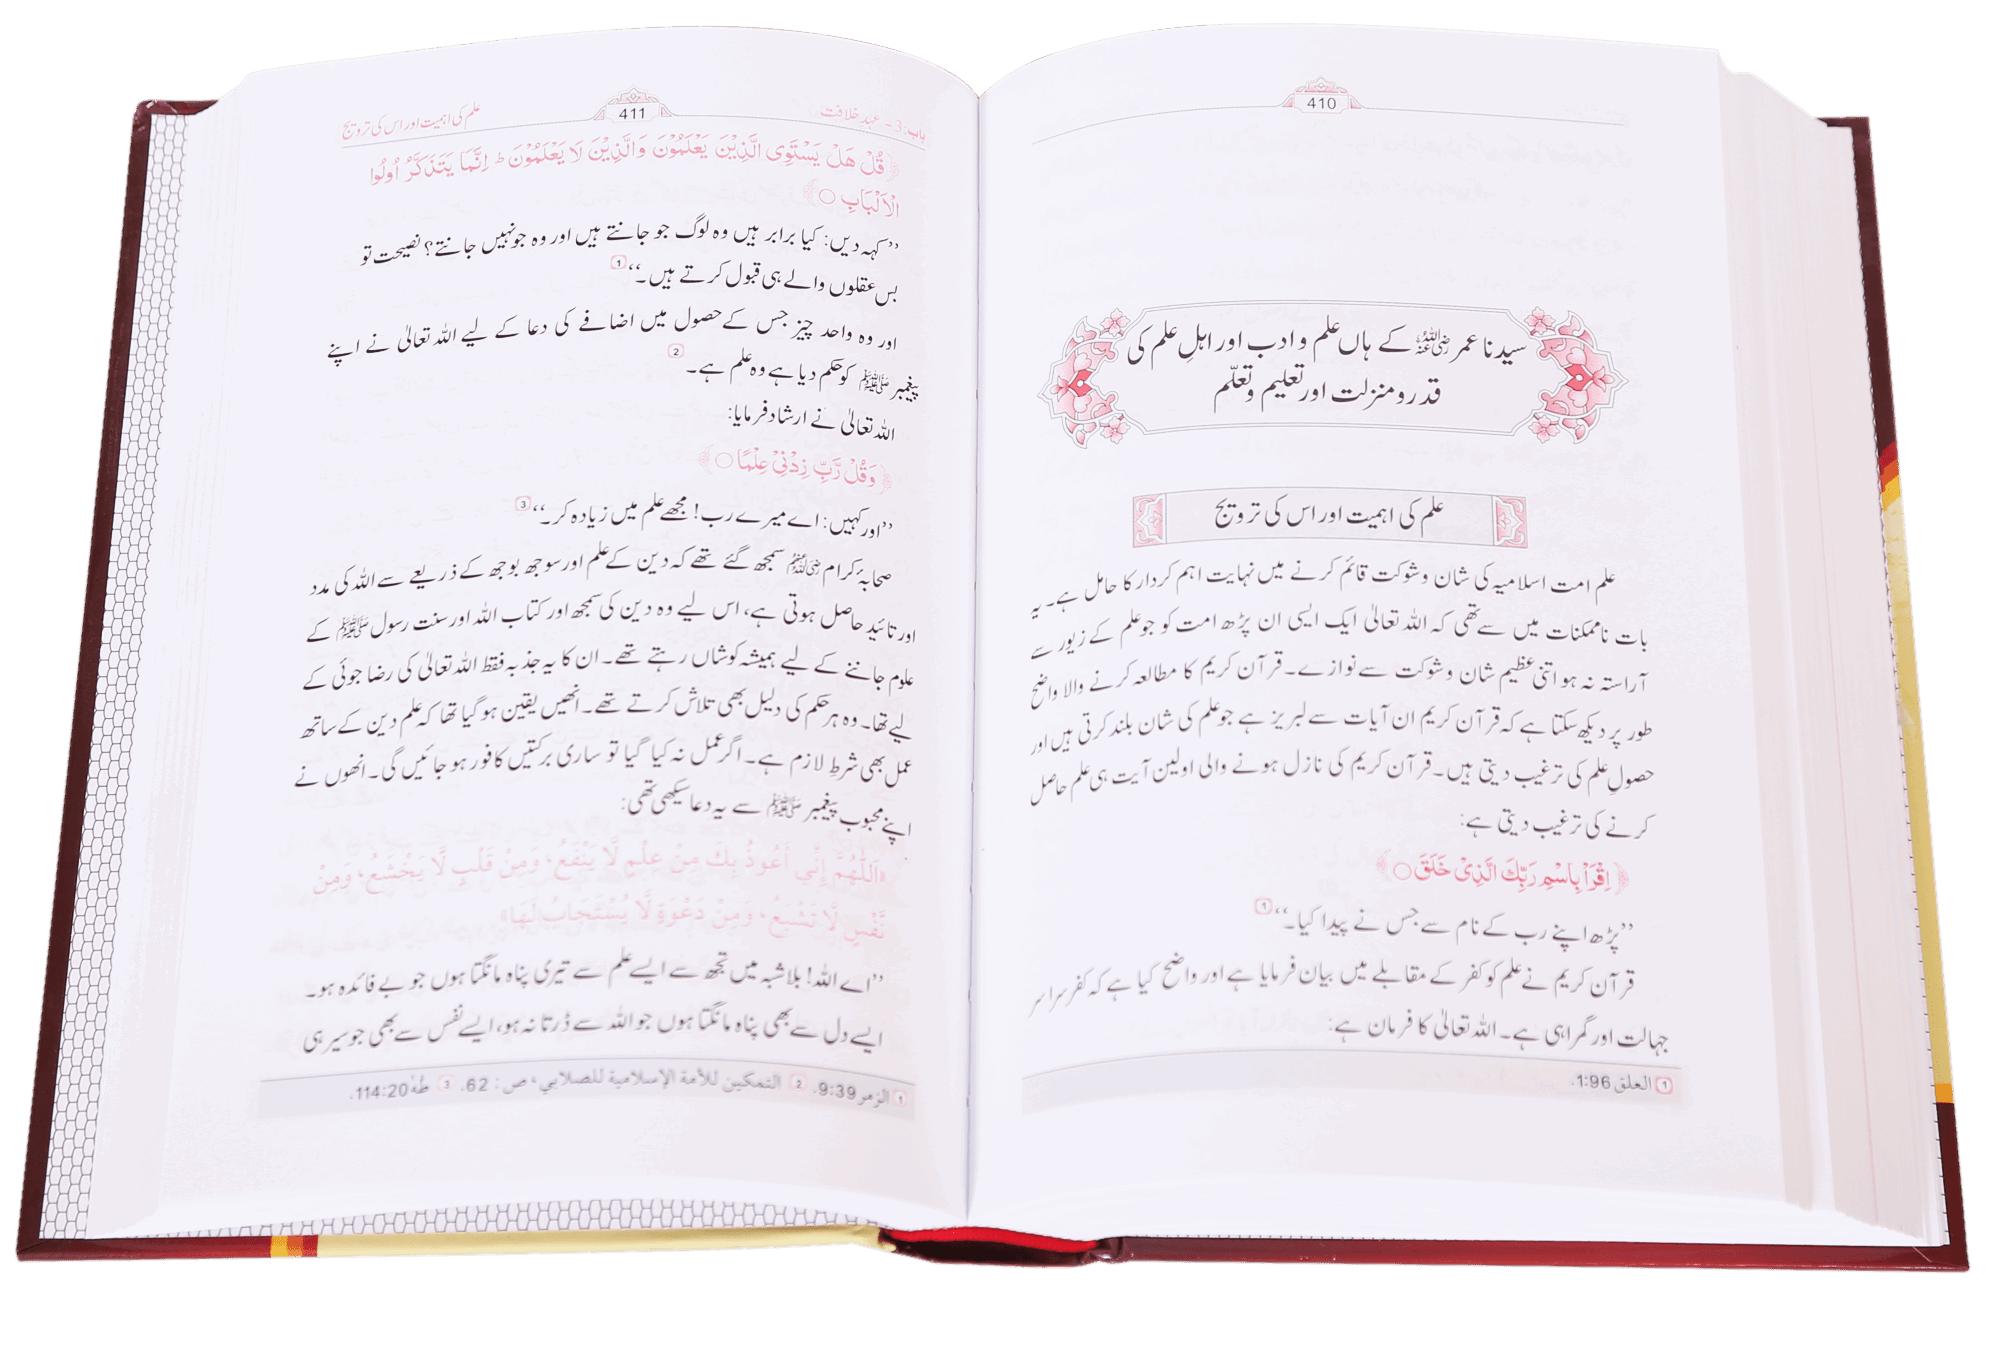 410
سیدنا عمر رضی اللہ عنہ کے ہاں علم و ادب اور اہلِ علم کی
قدر و منزلت اور تعلیم و تعلّم
علم کی اہمیت اور اس کی ترویج
علم امت اسلامیہ کی شان و شوکت قائم کرنے میں نہایت اہم کردار کا حامل ہے۔ یہ
بات ناممکنات میں سے تھی کہ اللہ تعالیٰ ایک ایسی ان پڑھ امت کو جو علم کے زیور سے
آراستہ نہ ہو اتنی عظیم شان و شوکت سے نوازے۔ قرآن کریم کا مطالعہ کرنے والا واضح
طور پر دیکھ سکتا ہے کہ قرآن کریم ان آیات سے لبریز ہے جو علم کی شان بلند کرتی ہیں اور
حصولِ علم کی ترغیب دیتی ہیں۔ قرآن کریم کی نازل ہونے والی اولین آیت ہی علم حاصل
کرنے کی ترغیب دیتی ہے:
﴿اِقْرَاْ بِاسْمِ رَبِّكَ الَّذِیْ خَلَقَ ○﴾
’’پڑھ اپنے رب کے نام سے جس نے پیدا کیا۔‘‘ 1
قرآن کریم نے علم کو کفر کے مقابلے میں بیان فرمایا ہے اور واضح کیا ہے کہ کفر سراسر
جہالت اور گمراہی ہے۔ اللہ تعالیٰ کا فرمان ہے:
1 العلق 1:96.
باب: 3 - عہدِ خلافت 411 علم کی اہمیت اور اس کی ترویج
﴿قُلْ هَلْ یَسْتَوِی الَّذِیْنَ یَعْلَمُوْنَ وَالَّذِیْنَ لَا یَعْلَمُوْنَ ط اِنَّمَا یَتَذَكَّرُ اُولُوا
الْاَلْبَابِ ○﴾
’’کہہ دیں: کیا برابر ہیں وہ لوگ جو جانتے ہیں اور وہ جو نہیں جانتے؟ نصیحت تو
بس عقلوں والے ہی قبول کرتے ہیں۔‘‘ 1
اور وہ واحد چیز جس کے حصول میں اضافے کی دعا کے لیے اللہ تعالیٰ نے اپنے
پیغمبر ﷺ کو حکم دیا ہے وہ علم ہے۔ 2
اللہ تعالیٰ نے ارشاد فرمایا:
﴿وَقُلْ رَّبِّ زِدْنِیْ عِلْمًا ○﴾
’’اور کہیں: اے میرے رب! مجھے علم میں زیادہ کر۔‘‘ 3
صحابۂ کرام رضی اللہ عنہم سمجھ گئے تھے کہ دین کے علم اور سوجھ بوجھ کے ذریعے سے اللہ کی مدد
اور تائید حاصل ہوتی ہے، اس لیے وہ دین کی سمجھ اور کتاب اللہ اور سنت رسول ﷺ کے
علوم جاننے کے لیے ہمیشہ کوشاں رہتے تھے۔ ان کا یہ جذبہ فقط اللہ تعالیٰ کی رضا جوئی کے
لیے تھا۔ وہ ہر حکم کی دلیل بھی تلاش کرتے تھے۔ انھیں یقین ہو گیا تھا کہ علم دین کے ساتھ
عمل بھی شرطِ لازم ہے۔ اگر عمل نہ کیا گیا تو ساری برکتیں کافور ہو جائیں گی۔ انھوں نے
اپنے محبوب پیغمبر ﷺ سے یہ دعا سیکھی تھی:
«اَللّٰهُمَّ إِنِّي أَعُوذُ بِكَ مِنْ عِلْمٍ لَّا يَنْفَعُ، وَمِنْ قَلْبٍ لَّا يَخْشَعُ، وَمِنْ
نَّفْسٍ لَّا تَشْبَعُ، وَمِنْ دَعْوَةٍ لَّا يُسْتَجَابُ لَهَا»
’’اے اللہ! بلاشبہ میں تجھ سے ایسے علم سے تیری پناہ مانگتا ہوں جو بے فائدہ ہو۔
ایسے دل سے بھی پناہ مانگتا ہوں جو اللہ سے ڈرتا نہ ہو، ایسے نفس سے بھی جو سیر ہی
1 الزمر 9:39. 2 التمكين للأمة الإسلامية للصلابي، ص: 62. 3 طٰهٰ 114:20.